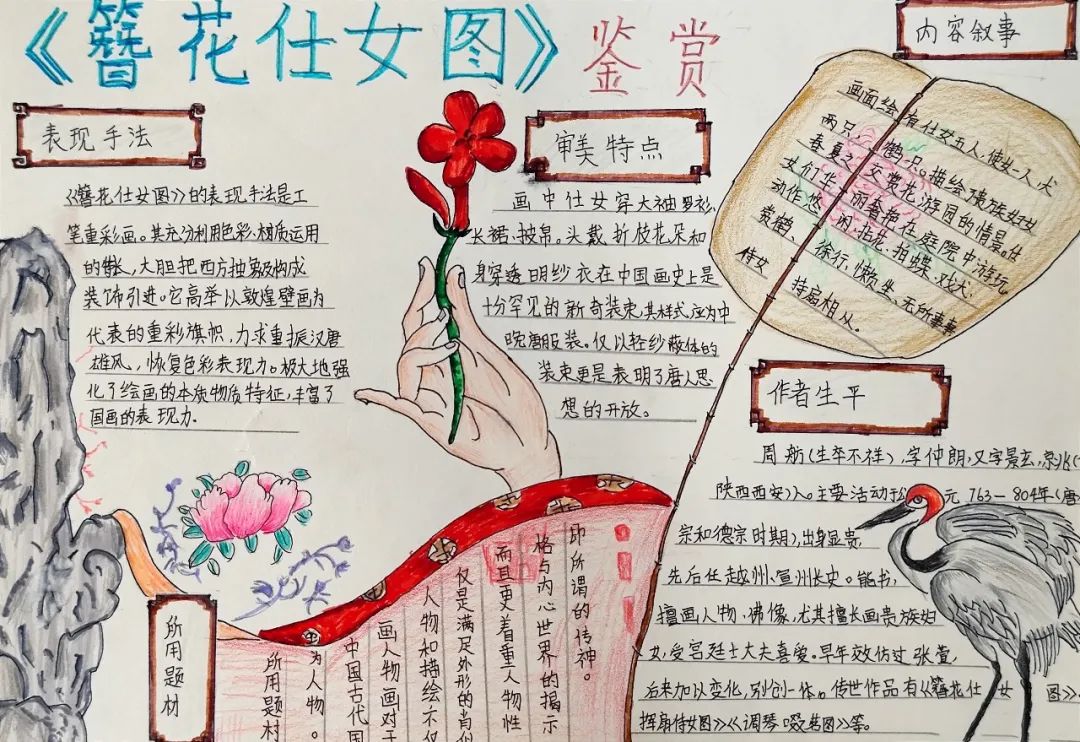 《簪花仕女图》鉴赏
表现手法
《簪花仕女图》的表现手法是工
笔重彩画。其充分利用色彩、材质运用
的特长，大胆把西方抽象及构成
装饰引进。它高举以敦煌壁画为
代表的重彩旗帜，力求重振汉唐
雄风，恢复色彩表现力。极大地强
化了绘画的本质物质特征，丰富了
国画的表现力.
审美特点
画中仕女穿大袖罗衫，
长裙、披帛。头戴折枝花朵和
身穿透明纱衣在中国画史上是
十分罕见的新奇装束，其样式应为中
晚唐服装。仅以轻纱蔽体的
装束更是表明了唐人思
想的开放。
内容叙事
画面绘有仕女五人，使女一人，犬
两只、鹤一只。描绘贵族妇女
春夏之交赏花游园的情景。仕
女们华丽奢艳在庭院中游玩
动作悠闲，拈花、拍蝶、戏犬、
赏鹤、徐行、懒坐、无所事事
侍女持扇相从。
作者生平
周昉（生卒不祥），字仲朗，又字景玄，京兆（
陕西西安）人。主要活动于公元763—804年（唐
宗和德宗时期），出身显贵，
先后任越州、宣州长史。能书，
擅画人物、佛像，尤其擅长画贵族妇
女，受宫廷士大夫喜爱。早年效仿过张萱，
后来加以变化，别创一体。传世作品有《簪花仕女图》、
《挥扇侍女图》《调琴啜茗图》等。
所用题材
所用题材
为人物。
中国古代国
画人物画对于
人物和描绘不仅
仅是满足外形的肖似
而且更着重人物性
格与内心世界的揭示
即所谓的传神。